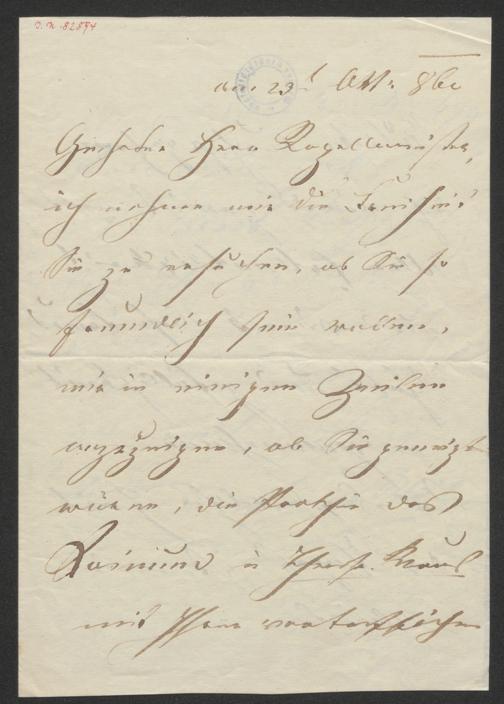 I. N. 82894
am 23t Okt. 860
Geehrter Herr Kapellmeister,
ich nehme mir die Freiheit
Sie zu ersuchen, ob Sie so
freundlich sein wollen,
mir in einigen Zeilen
anzuzeigen, ob Sie geneigt
wären, die Parthie des
mit Ihrer vortrefflichen